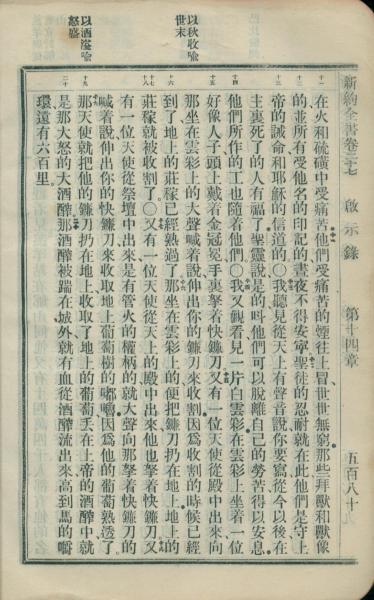 新約全書卷二十七　啟示錄　第十四章　五百八十九
在火和硫磺中受痛苦他們受痛苦的煙往上冒世世無窮那些拜獸和獸像
的並所有受他名的印記的晝夜不得安寧聖徒的忍耐就在此他們是守上
帝的誡命和耶穌的信道的〇我聽見從天上有聲音說你要寫從今以後在
主裏死了的人有福了聖靈說是的叫他們可以脫離自己的勞苦得以安息
他們所作的工也隨着他們〇我又觀看見一片白雲彩在雲彩上坐着一位
好像人子頭上戴着金冠冕手裏拏着快鐮刀又有一位天使從殿中出來向
那坐在雲彩上的大聲喊着說伸出你的鐮刀來收割因爲收割的時候已經
到了地上的莊稼已經熟過了那坐在雲彩上的便把鐮刀扔在地上地上的
莊稼就被收割了〇又有一位天使從天上的殿中出來他也拏着快鐮刀又
有一位天使從祭壇中出來是有管火的權柄的就大聲向那拏着快鐮刀的
喊着說伸出你的快鐮刀來收取地上葡萄樹的嘟嚕因爲他的葡萄熟透了
那天使就把他的鐮刀扔在地上收取了地上的葡萄丟在上帝的酒醡中就
是那大怒的大酒醡那酒醡被踹在城外就有血從酒醡流出來高到馬的嚼
環遠有六百里
以秋收喻
世末
以酒溢喻
怒盛
十一
十二
十三
十四
十五
十六
十七
十八
十九
二十